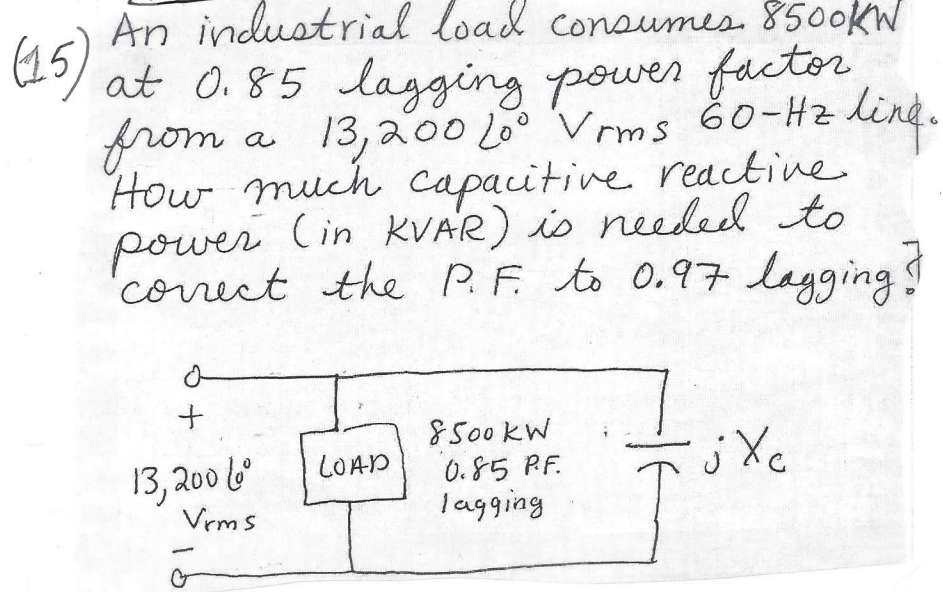 (15) An industrial load consumes 8500KW
at 0.85 lagging power factor
from a 13,200 ∠0° Vrms 60-Hz line.
How much capacitive reactive
power (in KVAR) is needed to
correct the P.F. to 0.97 lagging?
+
13,200 ∠0°
Vrms
-
LOAD
8500 KW
0.85 P.F.
lagging
jXc